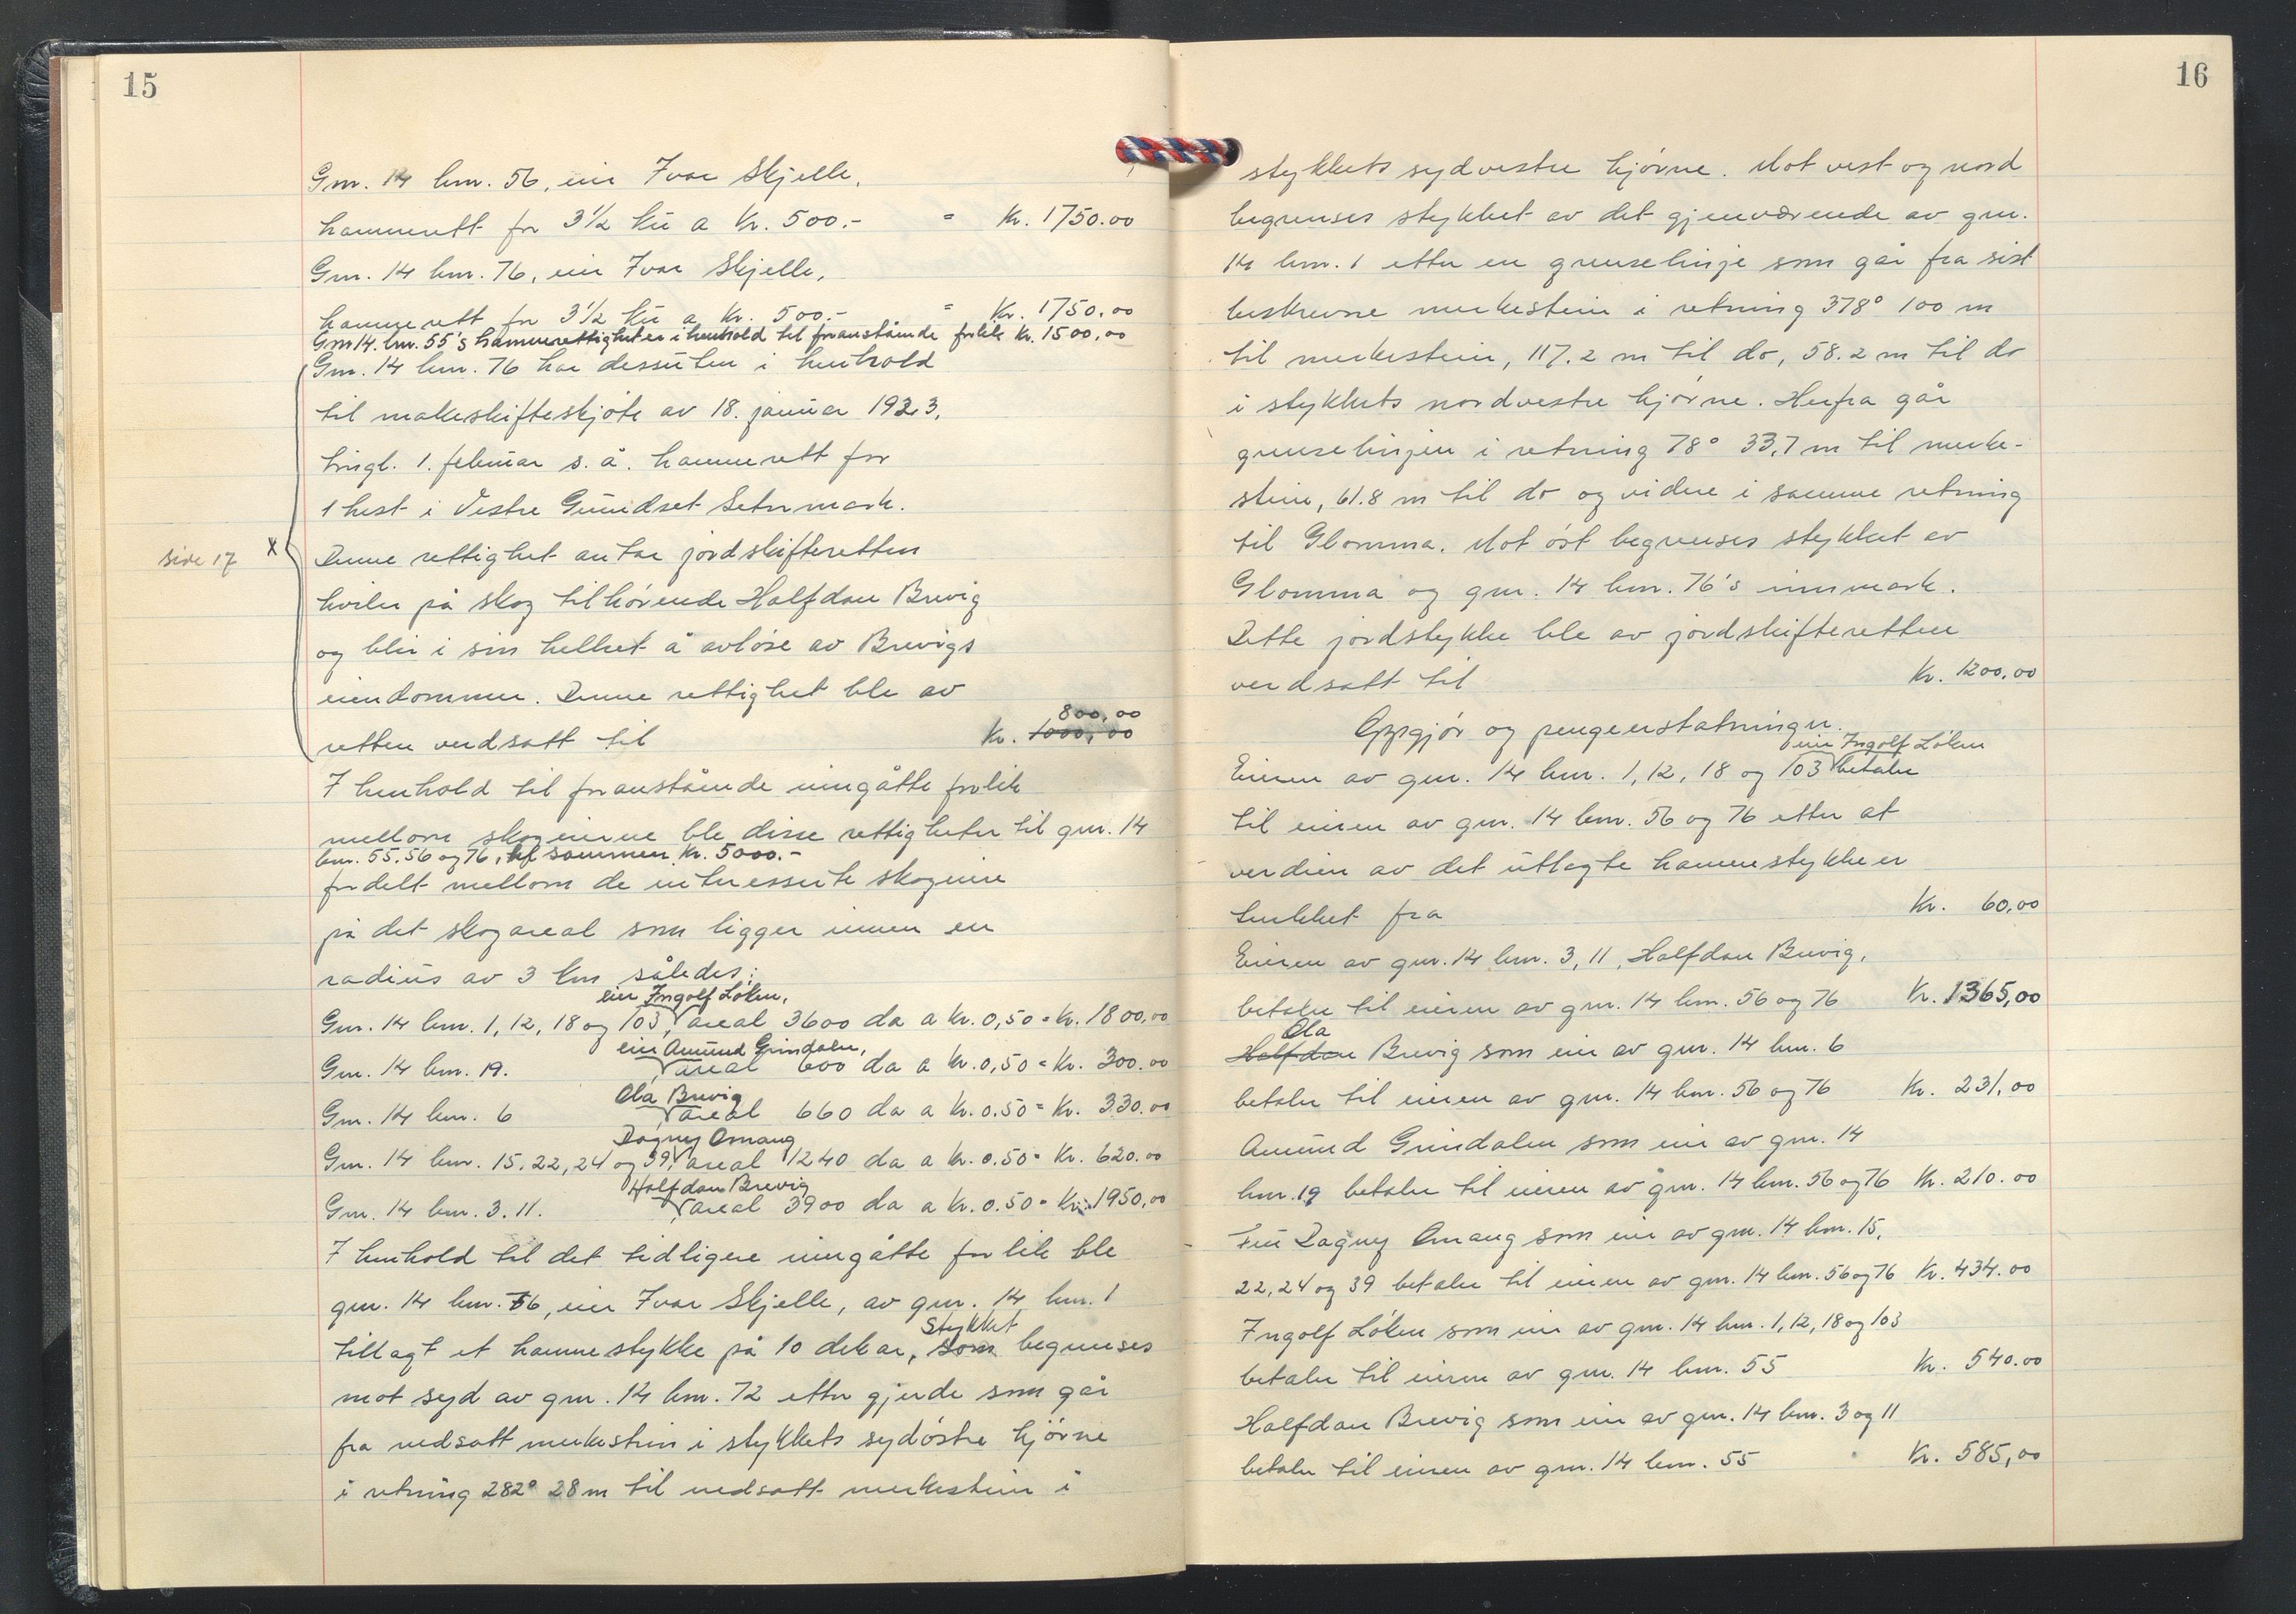 15
Gnr. 14 bnr. 56, eier Ivar Skjelle,
hamnerett for 3½ ku a Kr. 500.- = Kr. 1750.00
Gnr. 14 bnr. 76, eier Ivar Skjelle,
hamnerett for 3½ ku a Kr. 500.- = Kr. 1750,00
Gnr 14. bnr. 55's hamnerettigheter i henhold til foranstående forlik Kr. 1500,00
Gnr. 14 bnr. 76 har dessuten i henhold
til makeskifteskjøte av 18. januar 1923,
tingl. 1. februar s. å. hamnerett for
1 hest i Vestre Gundset Setermark.
side 17 x Denne rettighet antar jordskifteretten
hviler på skog tilhørende Halfdan Brevig
og blir i sin helhet å avløse av Brevigs
eiendommer. Denne rettighet ble av
800,00
retten verdsatt til Kr. 1000,00
I henhold til foranstående inngåtte forlik
mellom skogeierne ble disse rettigheter til gnr. 14
bnr. 55, 56 og 76, tils sammen Kr. 5000.-
fordelt mellom de interesserte skogeiere
på det skogareal som ligger innen en
radius av 3 km således:
eier Ingolf Løken,
Gnr. 14 bnr. 1, 12, 18 og 103, areal 3600 da a Kr. 0,50 = Kr. 1800,00
eier Amund Grindalen,
Gnr. 14 bnr. 19. areal 600 da a Kr. 0,50 = Kr. 300.00
Ola Brevig
Gnr. 14 bnr. 6 areal 660 da a Kr. 0.50 = Kr. 330.00
Dagny Omang
Gnr. 14 bnr. 15, 22, 24 og 39, areal 1240 da a Kr. 0.50 = Kr. 620.00
Halfdan Brevig
Gnr. 14 bnr. 3. 11. areal 3900 da a Kr. 0.50 = Kr. 1950,00
I henhold til det tidligere inngåtte forlik ble
gnr. 14 bnr. 56, eier Ivar Skjelle, av gnr. 14 bnr. 1
Stykket
tillagt et hamnestykke på 10 dekar, som begrenses
mot syd av gnr. 14 bnr. 72 etter gjerde som går
fra nedsatt merkestein i stykkets sydøstre hjørne
i retning 282° 28 m til nedsatt merkestein i
16
stykkets sydvestre hjørne. Mot vest og nord
begrenses stykket av det gjenværende av gnr.
14 bnr. 1 etter en grenselinje som går fra sist
beskrevne merkestein i retning 378° 100 m
til merkestein, 117.2 m til do, 58.2 m til do
i stykkets nordvestre hjørne. Herfra går
grenselinjen i retning 78° 33,7 m til merke-
stein, 61.8 m til do og videre i samme retning
til Glomma. Mot øst begrenses stykket av
Glomma og gnr. 14 bnr. 76's innmark.
Dette jordstykke ble av jordskifteretten
verdsatt til Kr. 1200,00
Oppgjør og pengeerstatninger.
eier Ingolf Løken
Eieren av gnr. 14 bnr. 1, 12, 18 og 103 betaler
til eieren av gnr. 14 bnr. 56 og 76 etter at
verdien av det utlagte hamnestykke er
trukket fra Kr. 60,00
Eieren av gnr. 14 bnr. 3, 11, Halfdan Brevig,
betaler til eieren av gnr. 14 bnr. 56 og 76 Kr. 1365,00
Ola
Halfdan Brevig som eier av gnr. 14 bnr. 6
betaler til eieren av gnr. 14 bnr. 56 og 76 Kr. 231,00
Amund Grindalen som eier av gnr. 14
bnr. 19 betaler til eieren av gnr. 14 bnr. 56 og 76 Kr. 210.00
Fru Dagny Omang som eier av gnr. 14 bnr. 15,
22, 24 og 39 betaler til eieren av gnr. 14 bnr. 56 og 76 Kr. 434.00
Ingolf Løken som eier av gnr. 14 bnr. 1, 12, 18 og 103
betaler til eieren av gnr. 14 bnr. 55 Kr. 540.00
Halfdan Brevig som eier av gnr. 14 bnr. 3 og 11
betaler til eieren av gnr. 14 bnr. 55 Kr. 585,00